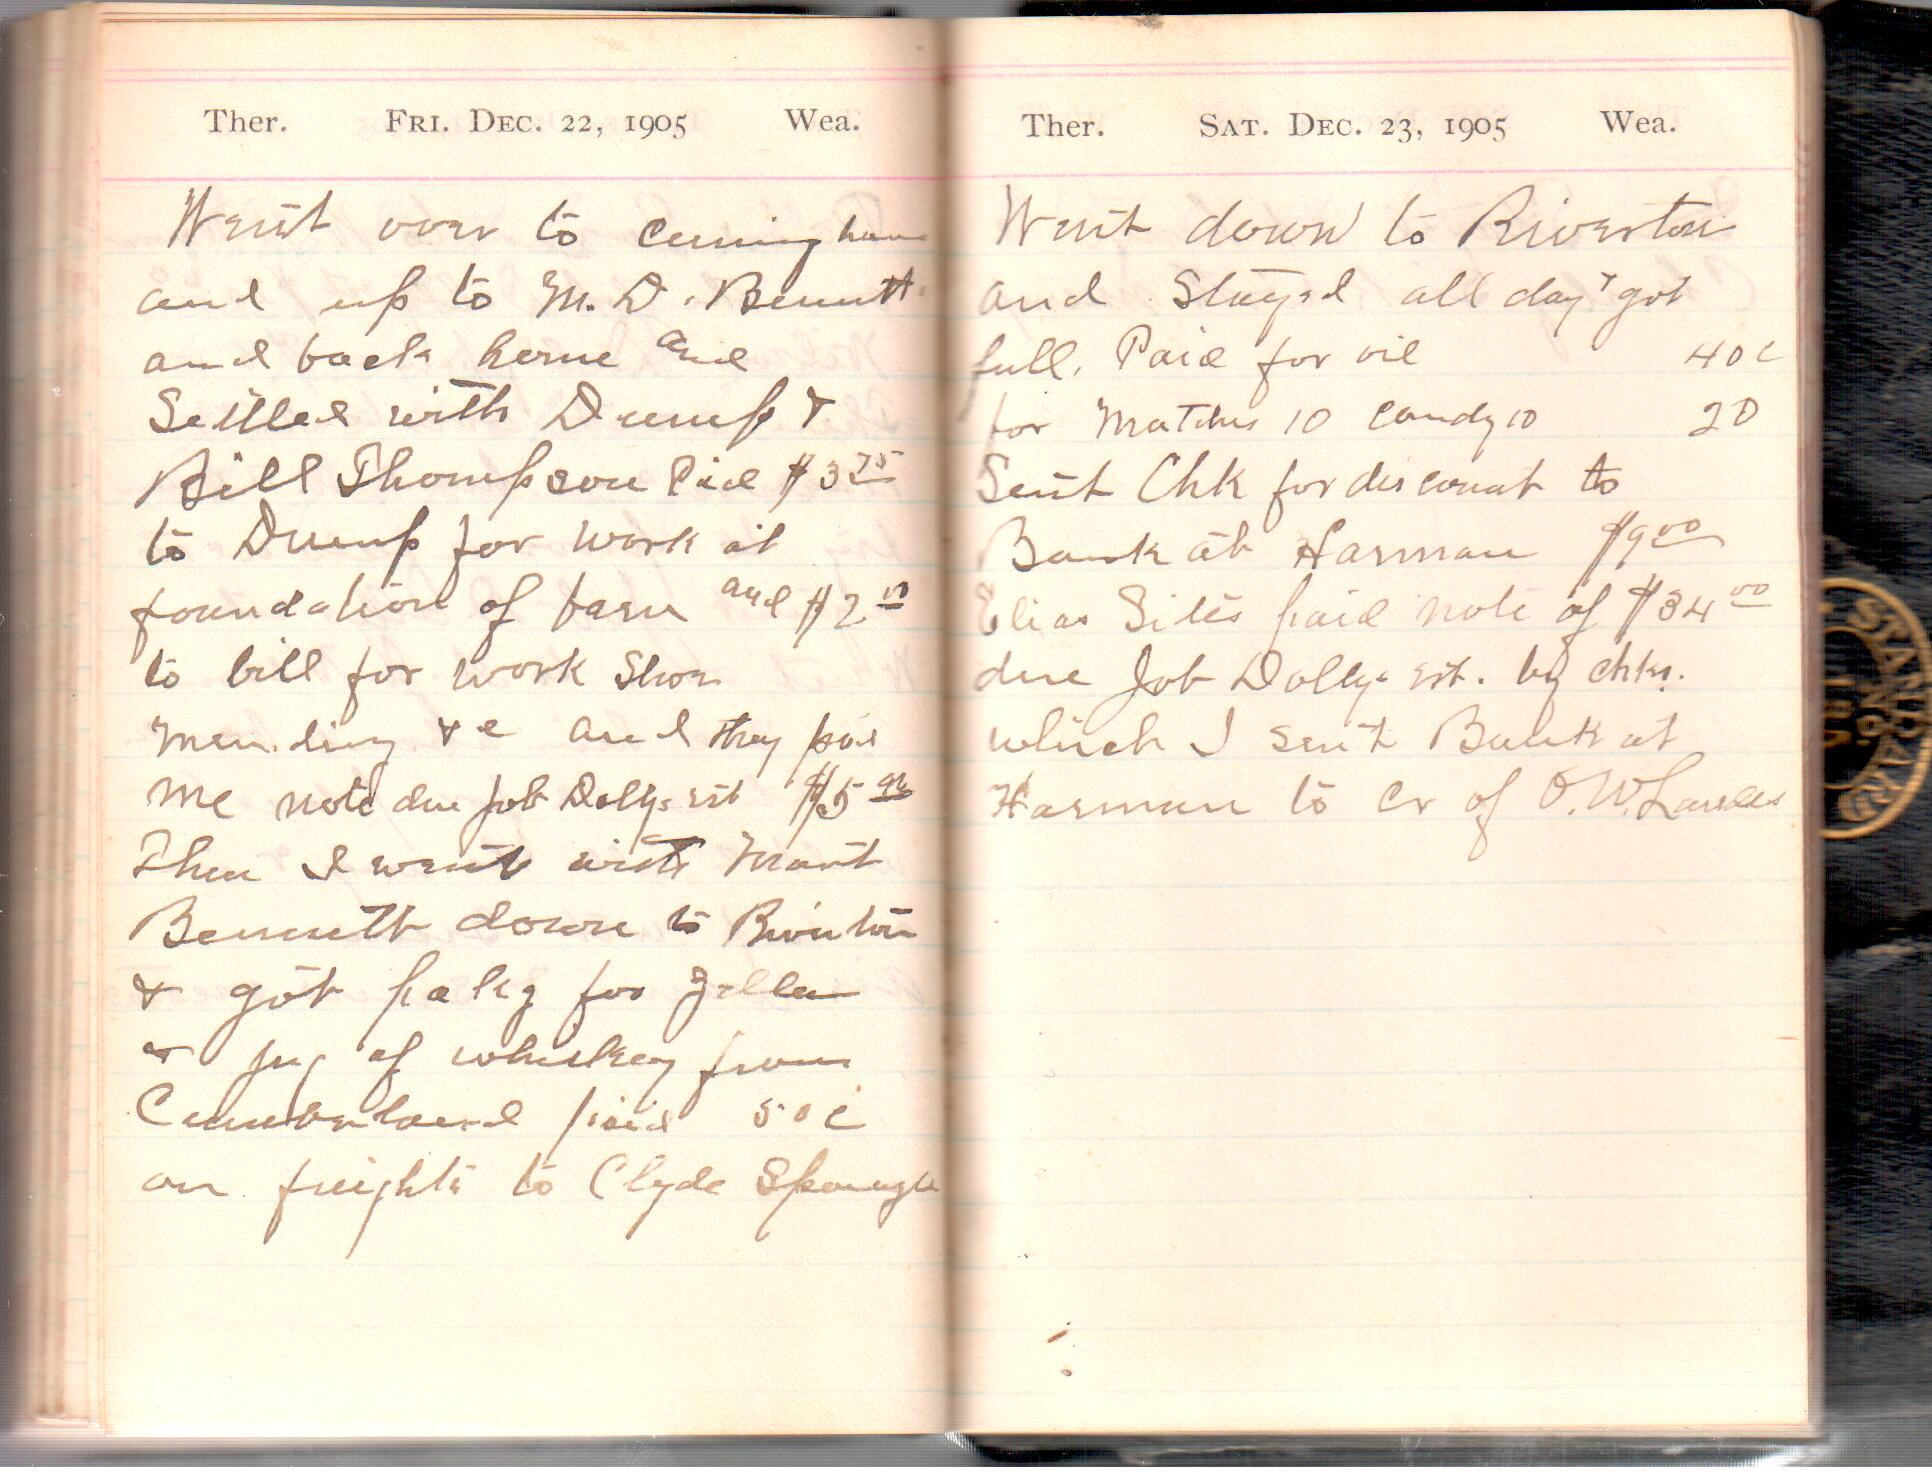 Ther. FRI. DEC. 22, 1905 Wea.
Went over to
and up to M. D. Bennett
and back home and
Settled with Dump &
Bill Thompson Paid $3 75
to Dump for work at
foundation of barn and $2 00
to bill for work Shoe
Mending &c and they paid
me note due Job Dollys est $5
Then I went with Mart
Bennett down to Riverton
& got pakg for
& jug of whiskey from
Cumberland paid 50c
on freights to Clyde Sponaugle
Ther. SAT. DEC. 23, 1905 Wea.
Went down to Riverton
and Stayed all day & got
full. Paid for oil 40c
for Matches 10 Candy 10 20
Sent Chk for discount to
Bank at Harman $9 00
Elias Sites paid note of $34 00
due Job Dollys est. by chks.
which I sent Bank at
Harman to cr of O. W.
STANDARD
NO.